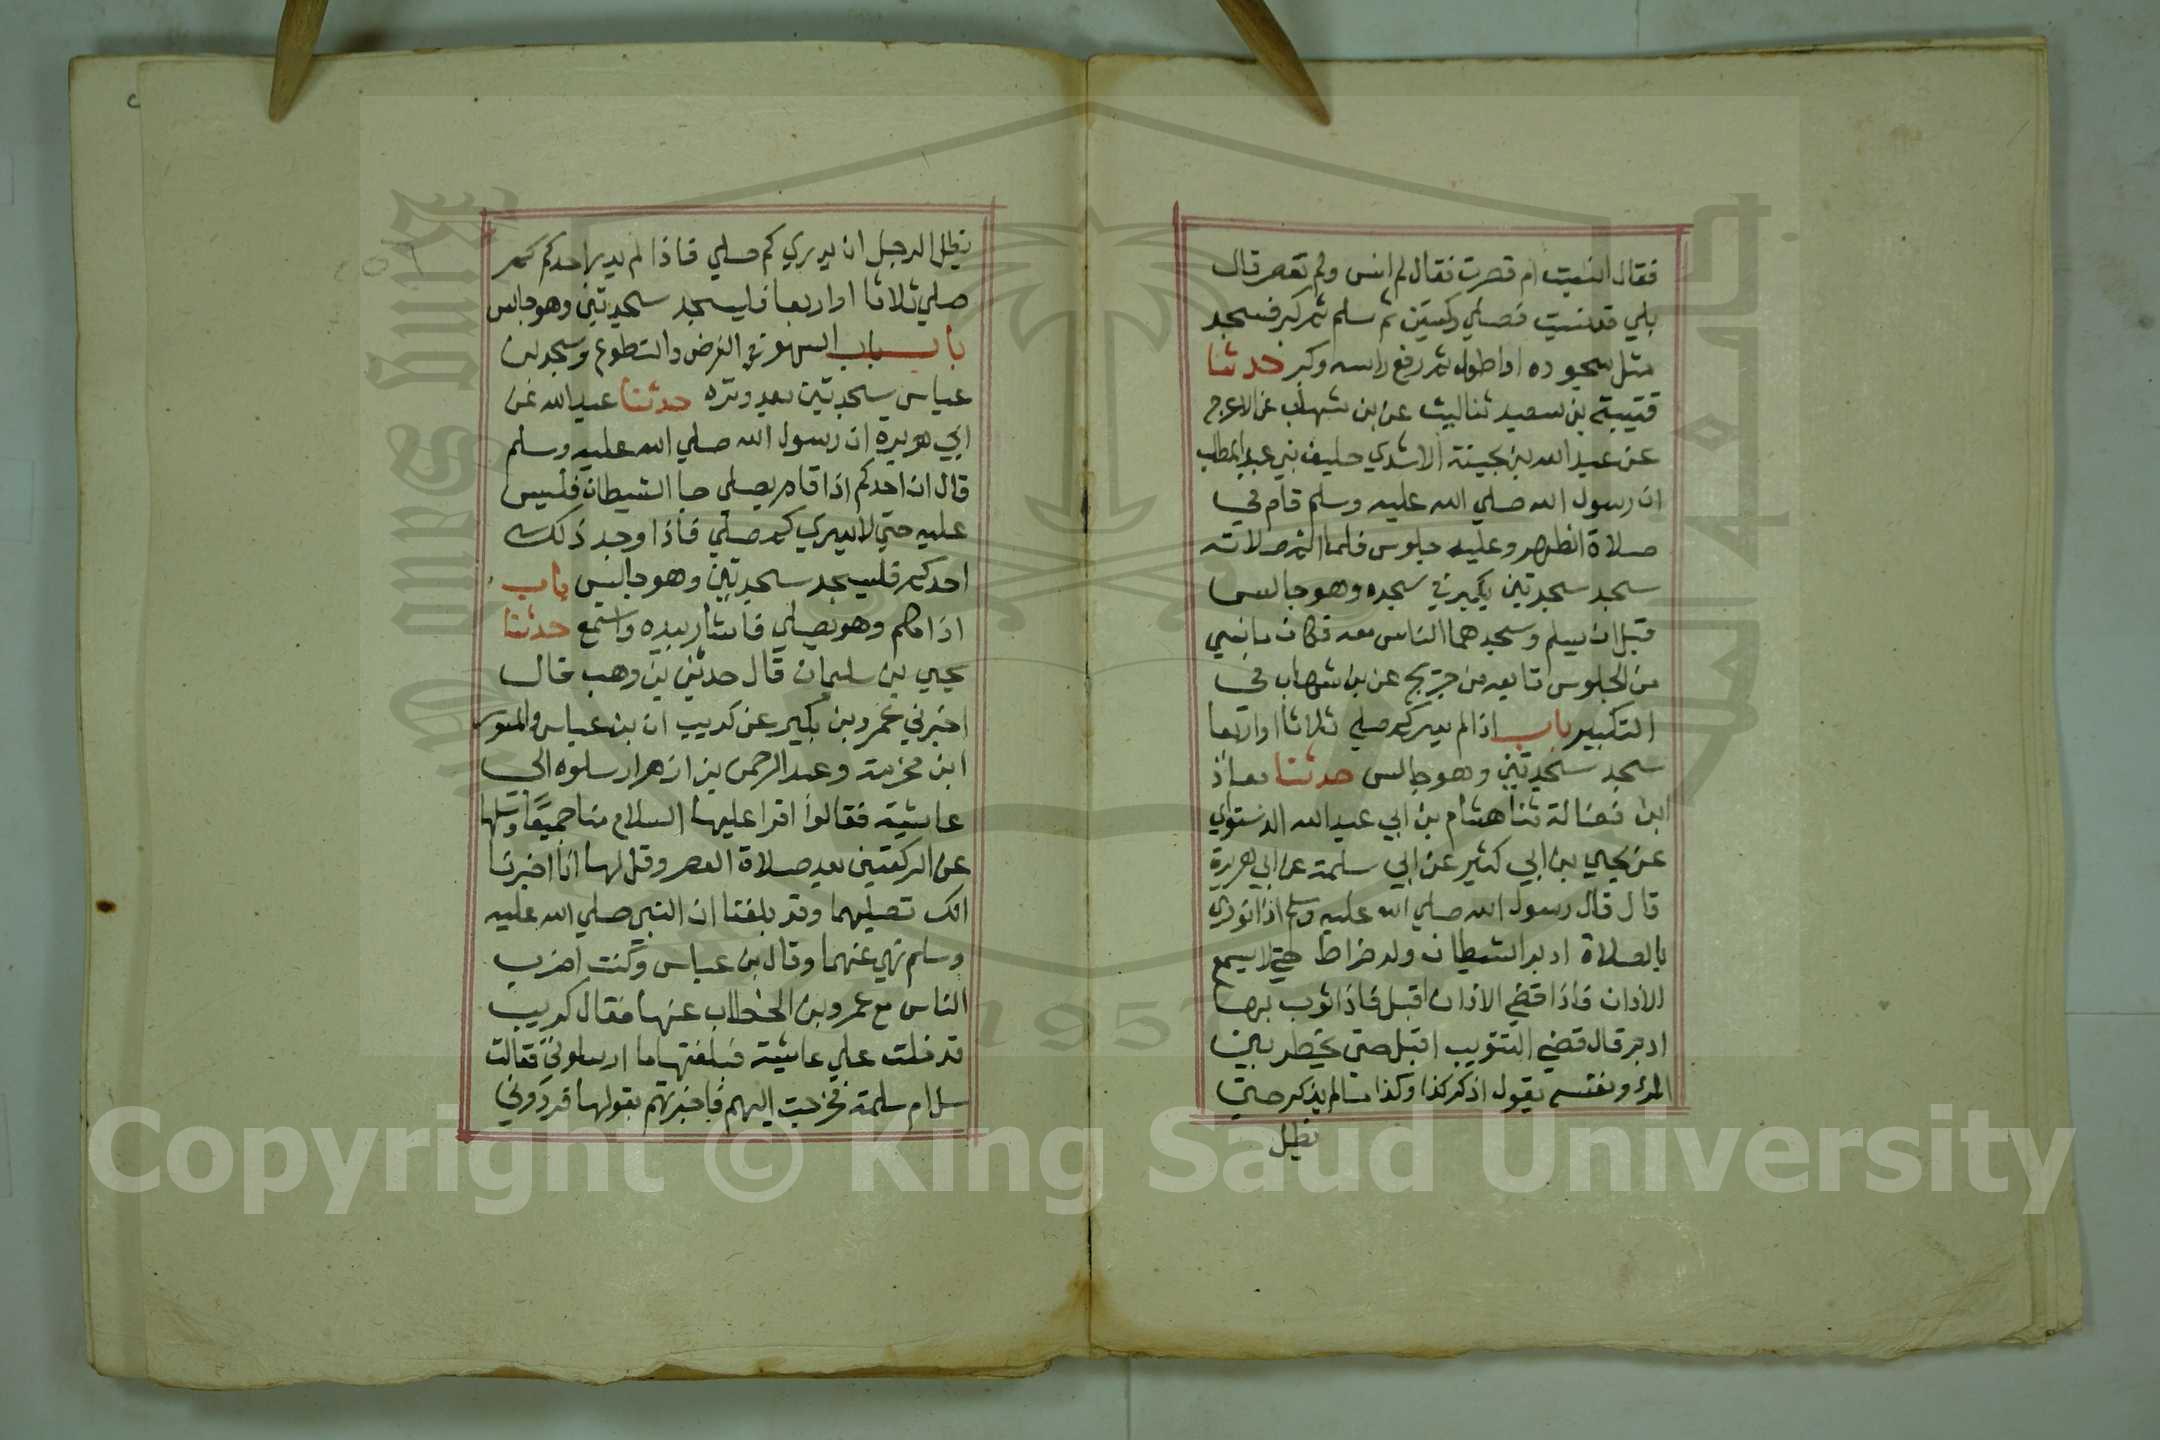 فقال انسيت ام قصرت فقال لم انس ولم تقصر قال
بلي قد نسيت فصلي ركعتين ثم سلم ثم كبر فسجد
مثل سجوده او اطول ثم رفع راسه وكبر حدثنا
قتيبة بن سعيد ثنا ليث عن بن شهاب عن الاعرج
عن عبد الله بن بحينة الاسدي حليف بني عبد المطلب
ان رسول الله صلي الله عليه وسلم قام في
صلاة الظهر وعليه جلوس فلما اتم صلاته
سجد سجدتين يكبر في سجده وهو جالس
قبل ان يسلم وسجدهما الناس معه فكان ما نسي
من الجلوس تابعه من جريج عن بن شهاب في
التكبير باب اذا لم يدر كم صلي ثلاثا او اربعا
سجد سجدتين وهو جالس حدثنا معاذ
ابن فضالة ثنا هشام بن ابي عبد الله الدستواي
عن يحيي بن ابي كثير عن ابي سلمة عن ابي هريرة
قال قال رسول الله صلي الله عليه وسلم اذا نودي
بالصلاة ادبر الشيطان وله ضراط حتي لا يسمع
الاذان فاذا قضي الاذان اقبل فاذا ثوب بها
ادبر قال قضي التثويب اقبل حتي يخطر بين
المرء ونفسه يقول اذكر كذا وكذا ما لم يذكر حتي
يظل
يظل الرجل ان يدري كم صلي فاذا لم يدر احدكم كم
صلي ثلاثا او اربعا فليسجد سجدتين وهو جالس
باب باب السهو في الفرض والتطوع وسجد بن
عباس سجدتين بعد وتره حدثنا عبد الله عن
ابي هريرة ان رسول الله صلي الله عليه وسلم
قال ان احدكم اذا قام يصلي جا الشيطان فلبس
عليه حتي لا يدري كم صلي فاذا وجد ذلك
احدكم فليسجد سجدتين وهو جالس باب
اذا كلم وهو يصلي فاشار بيده واستمع حدثنا
يحيي بن سليمان قال حدثني بن وهب قال
اخبرني عمرو بن بكير عن كريب ان بن عباس والمسور
ابن مخرمة وعبد الرحمن بن ازهر ارسلوه الي
عايشة فقالوا اقرا عليها السلام منا جميعا وسلها
عن الركعتين بعد صلاة العصر وقل لها انا اخبرنا
انك تصليهما وقد بلغنا ان النبي صلي الله عليه
وسلم نهي عنهما وقال بن عباس وكنت اضرب
الناس مع عمرو بن الخطاب عنها فقال كريب
فدخلت علي عايشة فبلغتها ما ارسلوني فقالت
سل ام سلمة فخرجت اليهم فاخبرتهم بقولها فردوني
King Saud University
1957
Copyright © King Saud University